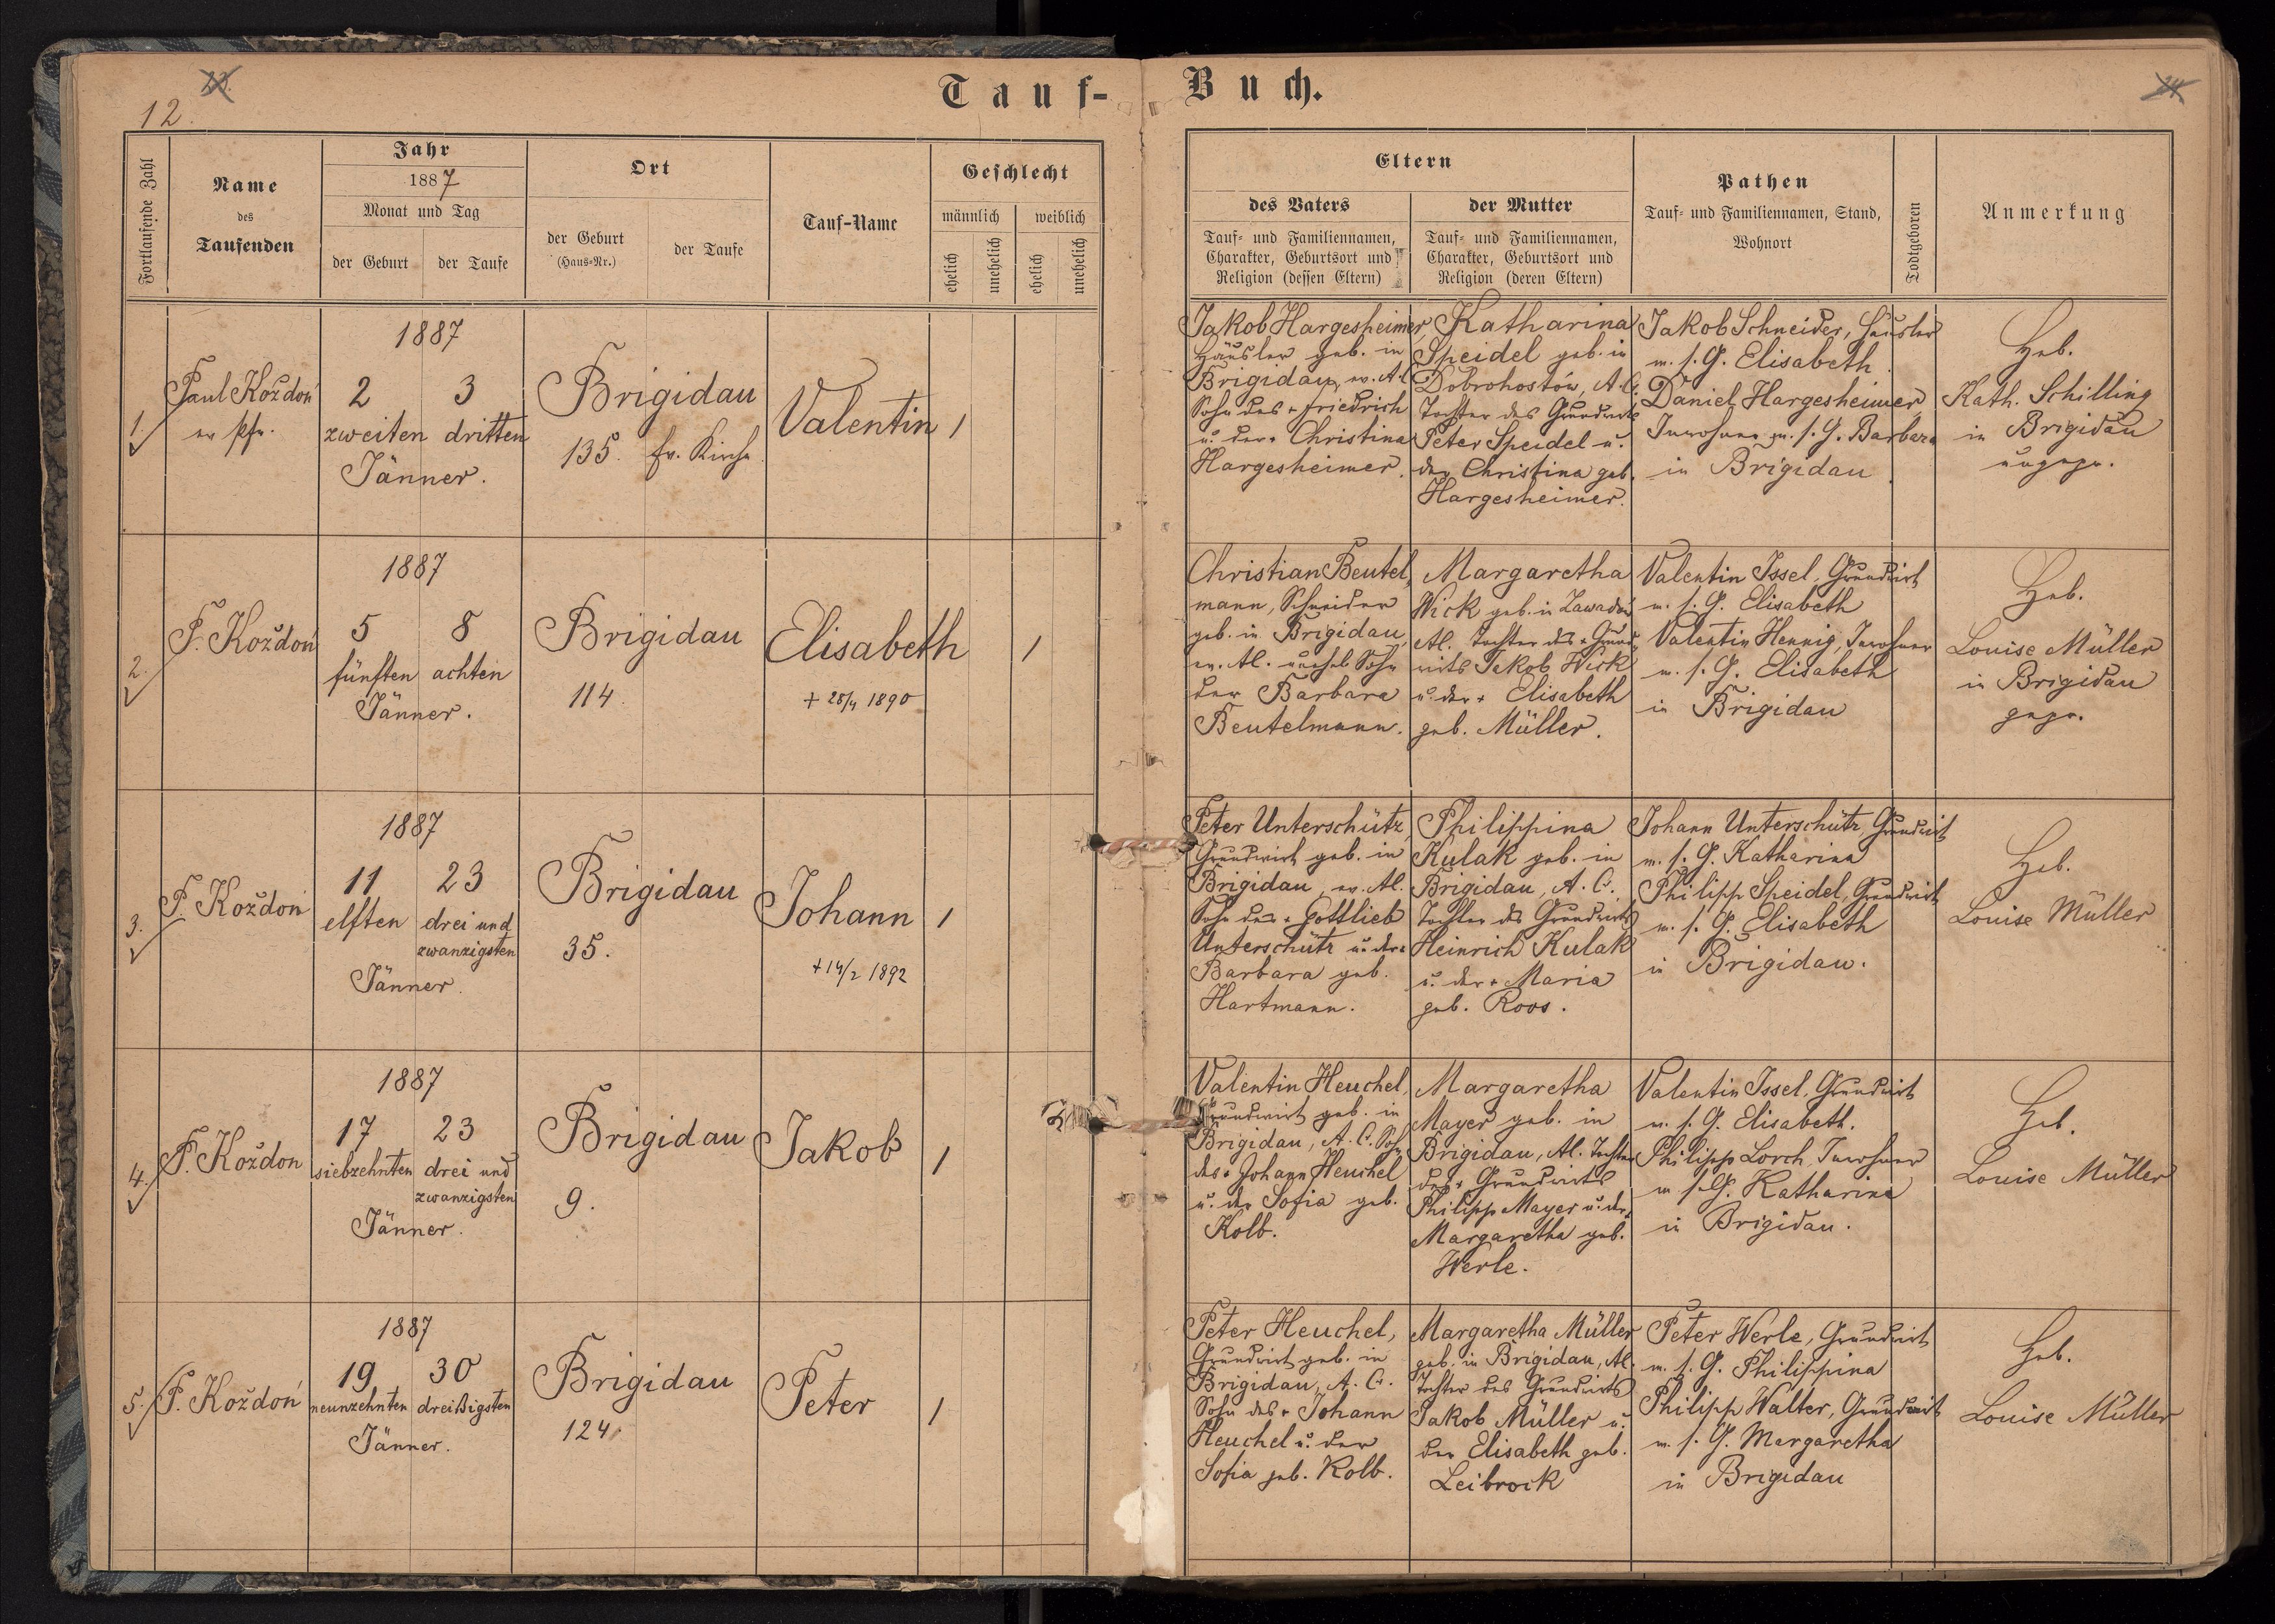 12.
23.
24
Tauf-
Buch.
Fortlaufende Zahl
Name
des
Taufenden
Jahr
1887
Monat und Tag
der Geburt
der Taufe
Ort
der Geburt
(Haus-Nr.)
der Taufe
Tauf-Name
Geschlecht
männlich
weiblich
ehelich
unehelich
ehelich
unehelich
Eltern
des Vaters
Tauf- und Familiennamen,
Charakter, Geburtsort und
Religion (dessen Eltern)
der Mutter
Tauf- und Familiennamen,
Charakter, Geburtsort und
Religion (deren Eltern)
Pathen
Tauf- und Familiennamen, Stand,
Wohnort
Todtgeboren
Anmerkung
1.
Paul Koždoń
ev. Pfr.
1887
2
3
zweiten dritten
Jänner.
Brigidau
135. Ev. Kirche
Valentin
1
Jakob Hargesheimer,
Häusler geb. in
Brigidau, ev. A.C.
Sohn des + Friedrich
u. der + Christina
Hargesheimer.
Katharina
Speidel geb. in
Dobrohostów, A.C.
Tochter des Grundwirts
Peter Speidel u.
der Christina geb.
Hargesheimer.
Jakob Schneider, Häusler
m. s. G. Elisabeth
Daniel Hargesheimer,
Inwohner m. s. G. Barbara
in Brigidau
Heb.
Kath. Schilling
in Brigidau
ungepr.
2.
P. Koždoń
1887
5
8
fünften achten
Jänner.
Brigidau
114.
Elisabeth
+ 28/4 1890
1
Christian Beutel,
mann, Schneider
geb. in Brigidau,
ev. Al. unehel. Sohn
der Barbara
Beutelmann.
Margaretha
Wick geb. in Zawadów
Al. Tochter des + Grund,
wirts Jakob Wick
u. der + Elisabeth
geb. Müller.
Valentin Issel, Grundwirt
m. s. G. Elisabeth
Valentin Hennig, Inwohner
m. s. G. Elisabeth
in Brigidau
Heb.
Louise Müller
in Brigidau
gepr.
3.
P. Koždoń
1887
11
23
elften drei und
zwanzigsten
Jänner.
Brigidau
35.
Johann
+ 14/2 1892
1
Peter Unterschütz,
Grundwirt geb. in
Brigidau, ev. Al.
Sohn des + Gottlieb
Unterschütz u. der +
Barbara geb.
Hartmann.
Philippina
Kulak geb. in
Brigidau, A. C.
Tochter des Grundwirts
Heinrich Kulak
u. der + Maria
geb. Roos.
Johann Unterschütz, Grundwirt
m. s. G. Katharina
Philipp Speidel, Grundwirt
m. s. G. Elisabeth
in Brigidau.
Heb.
Louise Müller
4.
P. Koždoń
1887
17
23
siebzehnten drei und
zwanzigsten
Jänner.
Brigidau
9.
Jakob
1
Valentin Heuchel,
Grundwirt geb. in
Brigidau, A. C. Sohn
des + Johann Heuchel
u. der Sofia geb.
Kolb.
Margaretha
Mayer geb. in
Brigidau, Al. Tochter
des + Grundwirts
Philipp Mayer u. der +
Margaretha geb.
Werle.
Valentin Issel, Grundwirt
m. s. G. Elisabeth.
Philipp Lorch, Inwohner
m. s. G. Katharina
in Brigidau.
Heb.
Louise Müller
5.
P. Koždoń
1887
19
30
neunzehnten dreißigsten
Jänner.
Brigidau
124
Peter
1
Peter Heuchel,
Grundwirt geb. in
Brigidau, A. C.
Sohn des + Johann
Heuchel u. der
Sofia geb. Kolb.
Margaretha Müller
geb. in Brigidau, Al.
Tochter des Grundwirts
Jakob Müller u.
der Elisabeth geb.
Leibrock
Peter Werle, Grundwirt
m. s. G. Philippina
Philipp Walter, Grundwirt
m. s. G. Margaretha
in Brigidau
Heb.
Louise Müller